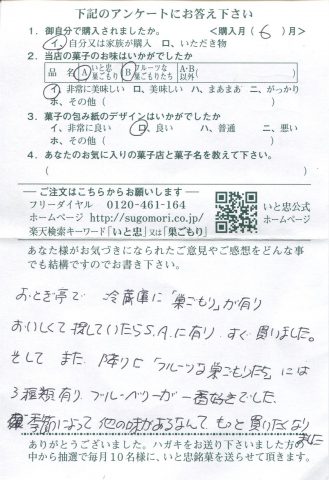 下記のアンケートにお答え下さい
1. 御自分で購入されましたか。 <購入月( 6 )月>
イ、自分又は家族が購入 ロ、いただき物
2. 当店の菓子のお味はいかがでしたか
品 名 A いと忠巣ごもり B フルーツな巣ごもりたち A・B以外
イ、非常に美味しい ロ、美味しい ハ、まあまあ ニ、がっかり
ホ、その他( )
3. 菓子の包み紙のデザインはいかがでしたか
イ、非常に良い ロ、良い ハ、普通 ニ、悪い
ホ、その他( )
4. あなたのお気に入りの菓子店と菓子名を教えて下さい。
( )
ご注文はこちらからお願いします
フリーダイヤル 0120-461-164
ホームページ http://sugomori.co.jp/
楽天検索キーワード「いと忠」又は「巣ごもり」
いと忠公式
ホームページ
あなた様がお気づきになられたご意見やご感想をどんな事
でも結構ですのでお書き下さい。
おとぎ亭で 冷蔵庫に「巣ごもり」が有り
おいしくて 探していたらS.A.に有り すぐ買いました。
そして また、下降りに「フルーツな巣ごもりたち」には
3種類有り ブルーベリーが一番好きでした。
季節によって 他の味があるなんて もっと買いたくなり
ました
ありがとうございました。ハガキをお送り下さいました方の
中から抽選で毎月10名様に、いと忠銘菓を送らせて頂きます。